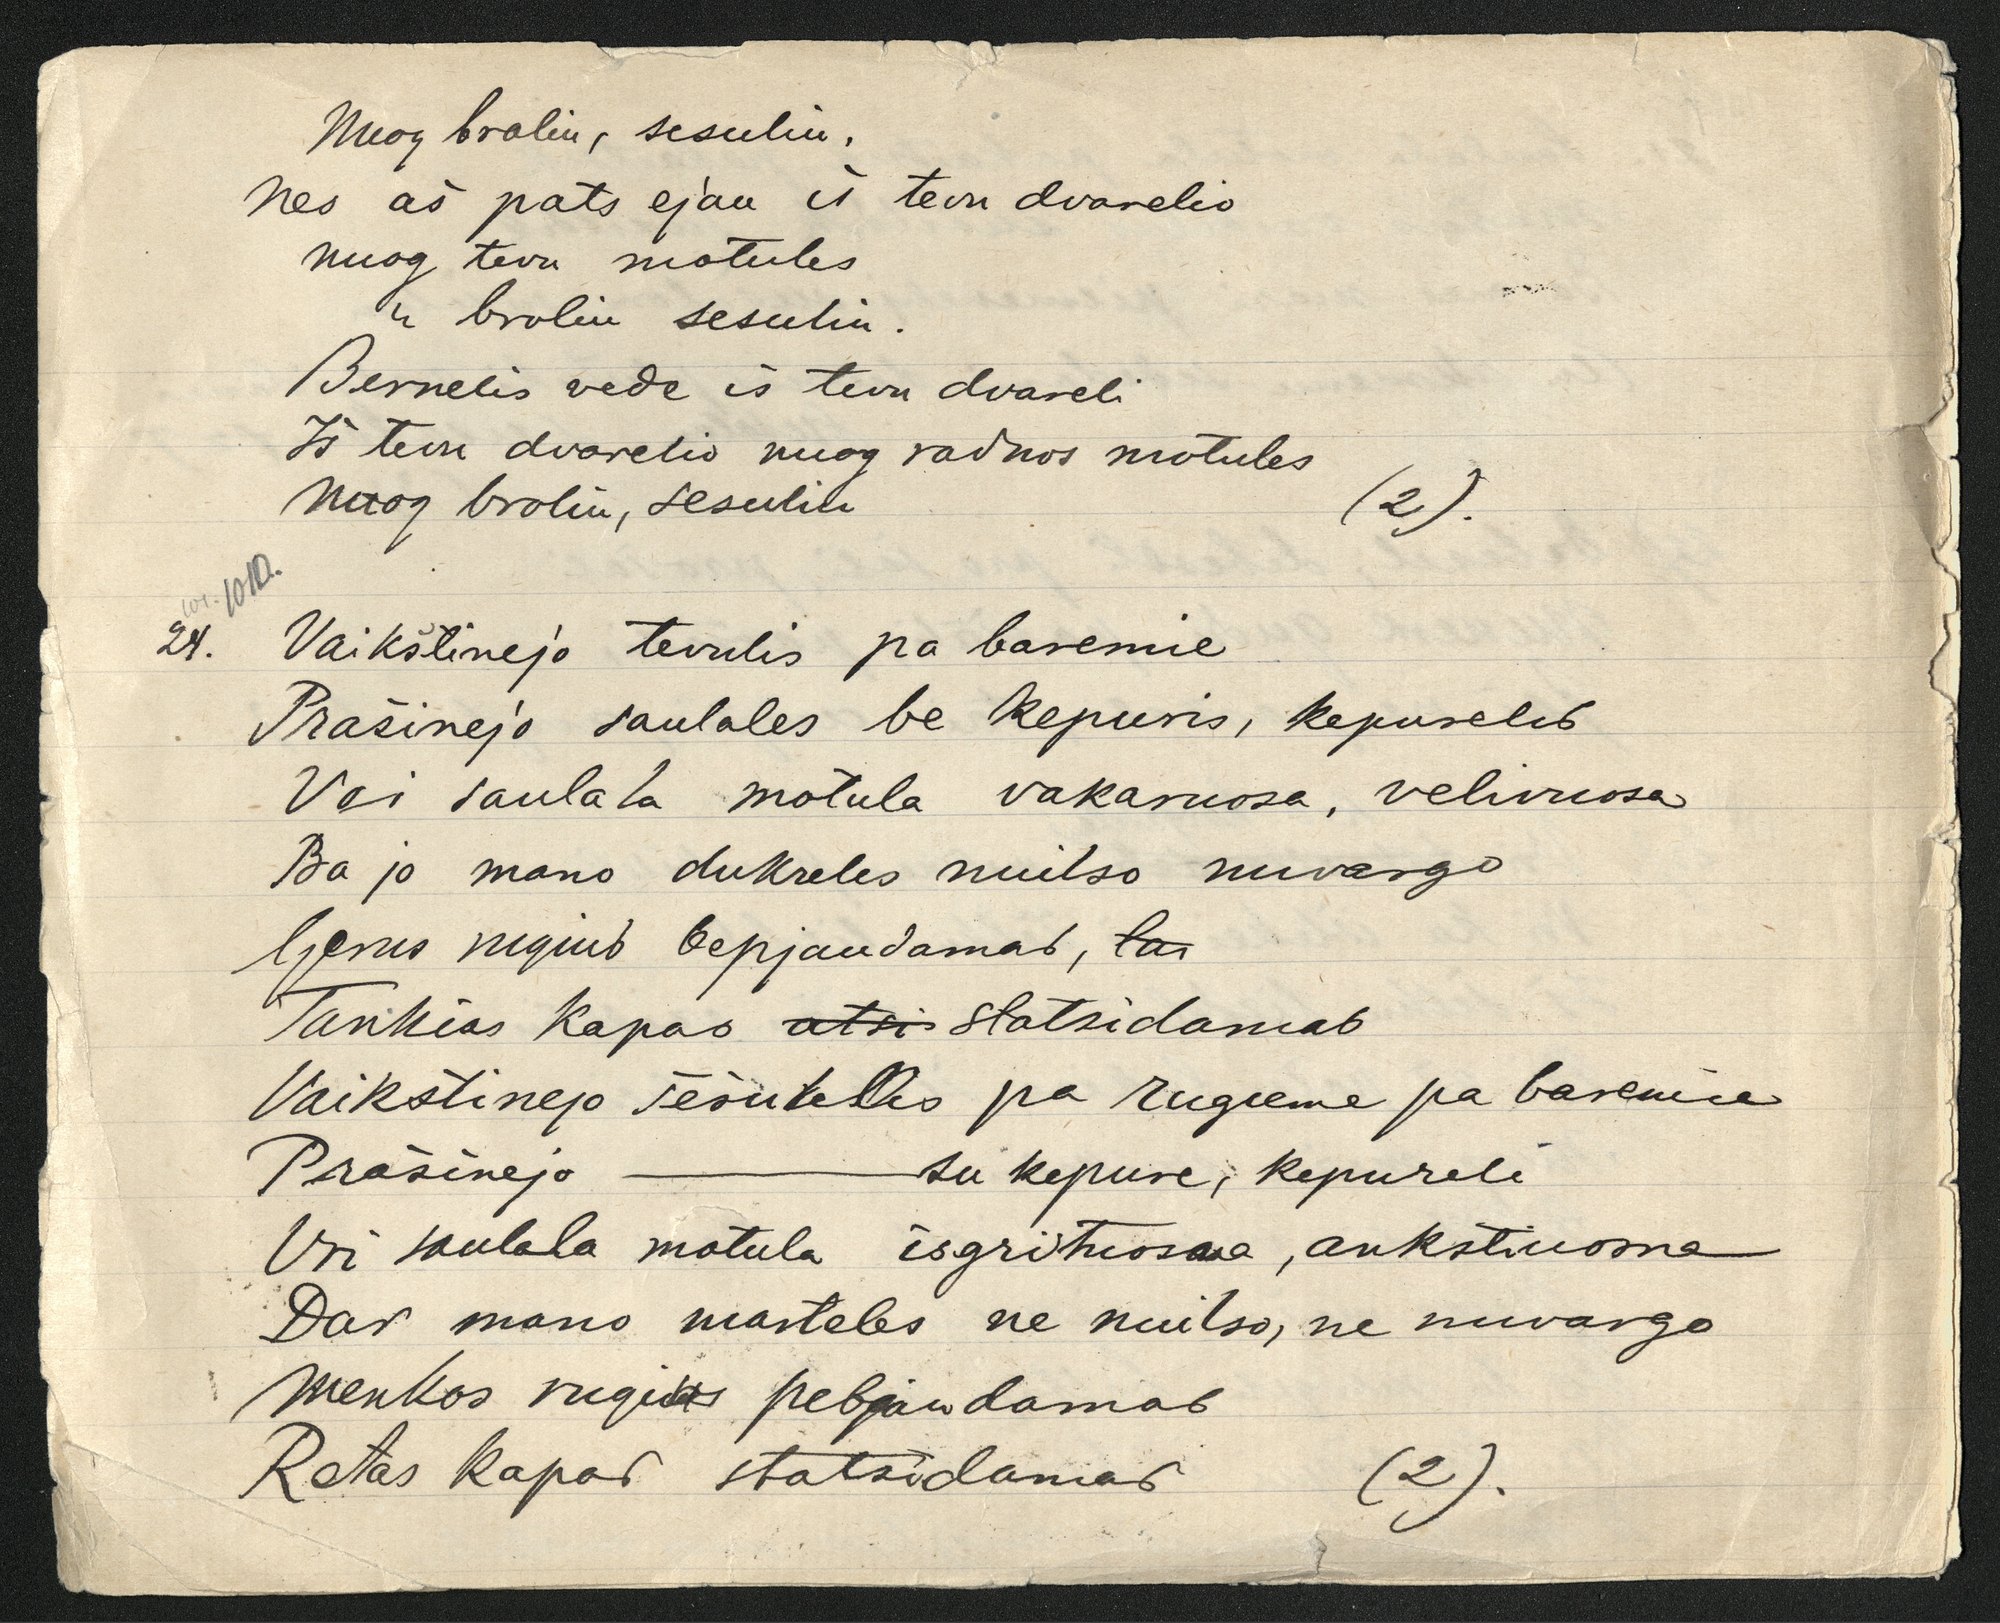 Nuog broliu, sesuliu,
Nes aš pats ejau iš tevu dvarelio
nuog tevu motules
" broliu sesuliu.
Bernelis vede iš tevu dvareli
Iš tevu dvarelio nuog radnos motules
Nuog broliu, sesuliu (2).
101. 1010.
24. Vaikštinejo tevulis pa baremie
Prašinejo saulales be kepuris, kepurelis
Vai saulala motula vakaruosa, velivuosa
Ba jo mano dukreles nuilso nuvargo
Gerus rugius bepjaudamas, tas
Tankias kapas atsi statsidamas
Vaikštinejo šešutelis pa rugieme pa baremie
Prašinejo ——— su kepure, kepureli
Vai saulala motula išgrituosna, ankstiuosna
Dar mano marteles ne nuilso, ne nuvargo
Menkos rugius pebjaudamas
Retas kapas statsidamas (2).